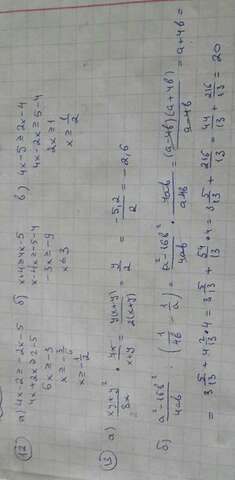 12 а) 4x-2 ≥ -2x-5
4x+2x ≥ 2-5
6x ≥ -3
x ≥ -3/6
x ≥ -1/2
б) x+4 ≥ 4x-5
x-4x ≥ -5-4
-3x ≥ -9
x ≤ 3
в) 4x-5 ≥ 2x-4
4x-2x ≥ 5-4
2x ≥ 1
x ≥ 1/2
13 а) · 4x/(x+y) = y(x+y)/2(x+y) = y/2 = -5,2/2 = -2,6
б) (a²-16b²)/4ab · (1/4b - 1/a) = (a²-16b²)/4ab · 4ab/(a-4b) = (a-4b)(a+4b)/(a-4b) = a+4b =
= 3 5/13 + 4 2/13 · 4 = 3 5/13 + 54/13 · 4 = 3 5/13 + 216/13 = 44/13 + 216/13 = 20